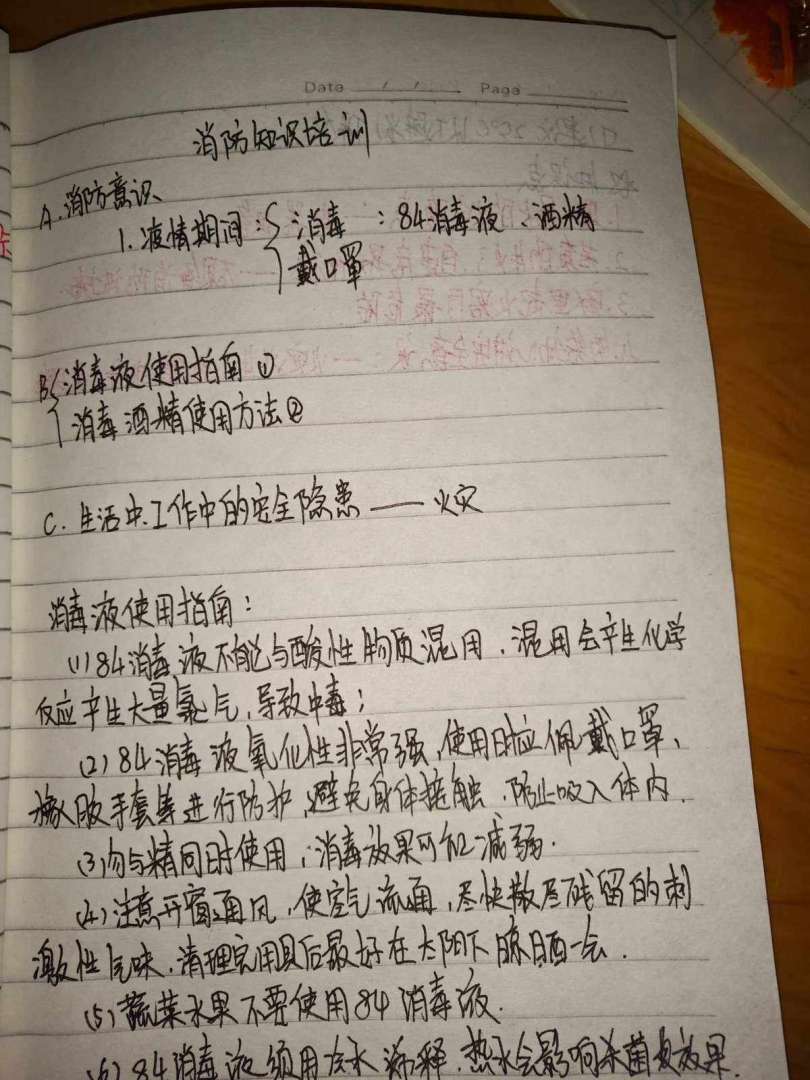 Date / / Page
消防知识培训
A.消防意识
1.疫情期间:{消毒:84消毒液、酒精
戴口罩
B{消毒液使用指南①
消毒酒精使用方法②
C.生活中.工作中的安全隐患——火灾
消毒液使用指南:
(1)84消毒液不能与酸性物质混用,混用会产生化学
反应产生大量氯气,导致中毒;
(2)84消毒液氧化性非常强,使用时应佩戴口罩、
橡胶手套等进行防护,避免身体接触,防止吸入体内.
(3)勿与精同时使用,消毒效果可能减弱.
(4)注意开窗通风,使空气流通,尽快散尽残留的刺
激性气味,清理完用具后最好在太阳下晾晒一会.
(5)蔬菜水果不要使用84消毒液.
(6)84消毒液须用冷水稀释,热水会影响杀菌效果.